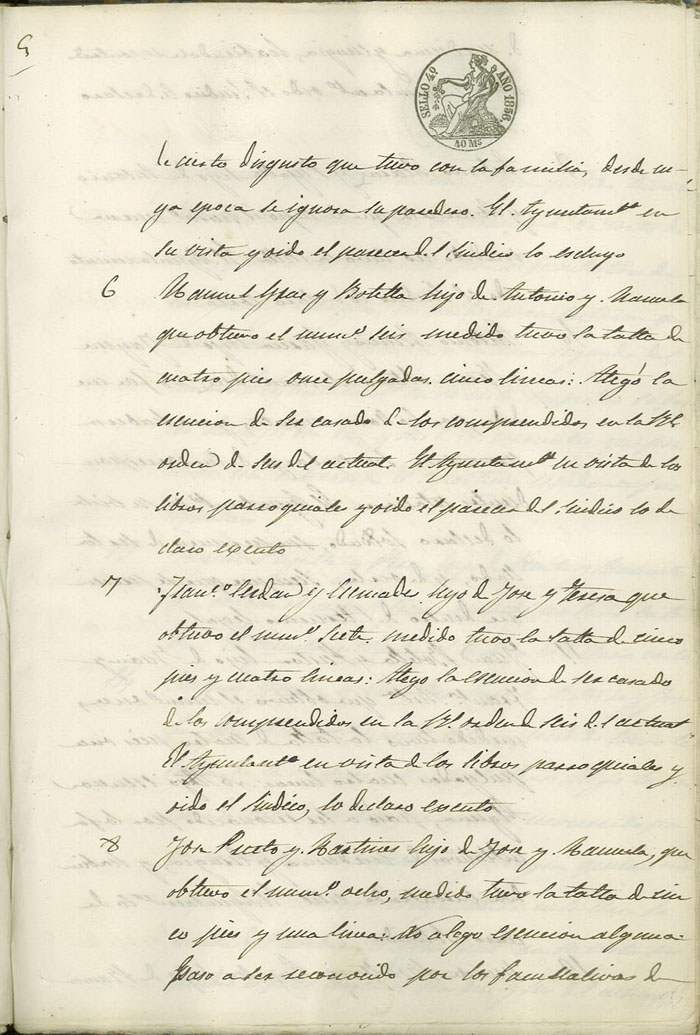 5
SELLO 4º AÑO 1856.
40 Ms
de cierto disgusto que tuvo con la familia, desde cu-
ya epoca se ignora su paradero. El Ayuntamto en
su vista y oido el parecer del Sindico lo escluyo
6 Manuel y Botella hijo de Antonio y Manuela
que obtuvo el numo. seis medido tuvo la talla de
cuatro pies once pulgadas cinco lineas: Alegó la
esencion de ser casado de los comprendidos en la Rl
orden de seis del actual. El Ayuntamto en vista de los
libros parroquiales y oido el parecer del Sindico lo de
claro exento
7 Franco. y hijo de Jose y Teresa que
obtuvo el numo. siete medido tuvo la talla de cinco
pies y cuatro lineas: Alego la esencion de ser casado
de los comprendidos en la Rl. orden de seis del actual
El Ayuntamto en vista de los libros parroquiales y
oido el Sindico, lo declaro exento
8 Jose y Martines hijo de Jose y Manuela, que
obtuvo el numo. ocho, medido tuvo la talla de cin
co pies y una linea: No alego esencion alguna.
Paso a ser reconocido por los facultativos de